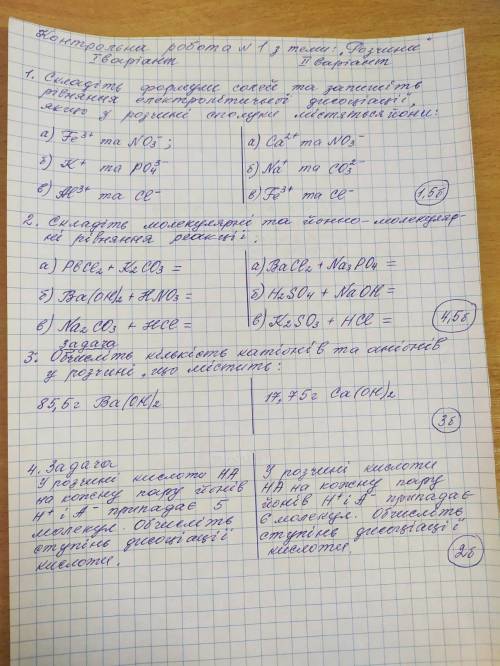 Контрольна робота №1 з теми: „Розчини"
I варіант II варіант
1. Складіть формули солей та запишіть
рівняння електролітичної дисоціації,
якщо у розчині сполуки містяться йони:
а) Fe³⁺ та NO₃⁻; а) Ca²⁺ та NO₃⁻
б) K⁺ та PO₄³⁻ б) Na⁺ та CO₃²⁻
в) Al³⁺ та Cl⁻ в) Fe³⁺ та Cl⁻ 1,5б
2. Складіть молекулярні та йонно-молекуляр-
ні рівняння реакції.
а) PbCl₂ + K₂CO₃ = а) BaCl₂ + Na₃PO₄ =
б) Ba(OH)₂ + HNO₃ = б) H₂SO₄ + NaOH =
в) Na₂CO₃ + HCl = в) K₂SO₃ + HCl = 4,5б
задача
3. Обчисліть кількість катіонів та аніонів
у розчині, що містить:
85,5г Ba(OH)₂ 17,75г Ca(OH)₂
3б
4. Задача
У розчині кислоти HA
на кожну пару йонів
H⁺ і A⁻ припадає 5
молекул. Обчисліть
ступінь дисоціації
кислоти.
У розчині кислоти
HA на кожну пару
йонів H⁺ і A⁻ припадає
6 молекул. Обчисліть
ступінь дисоціації
кислоти.
2б